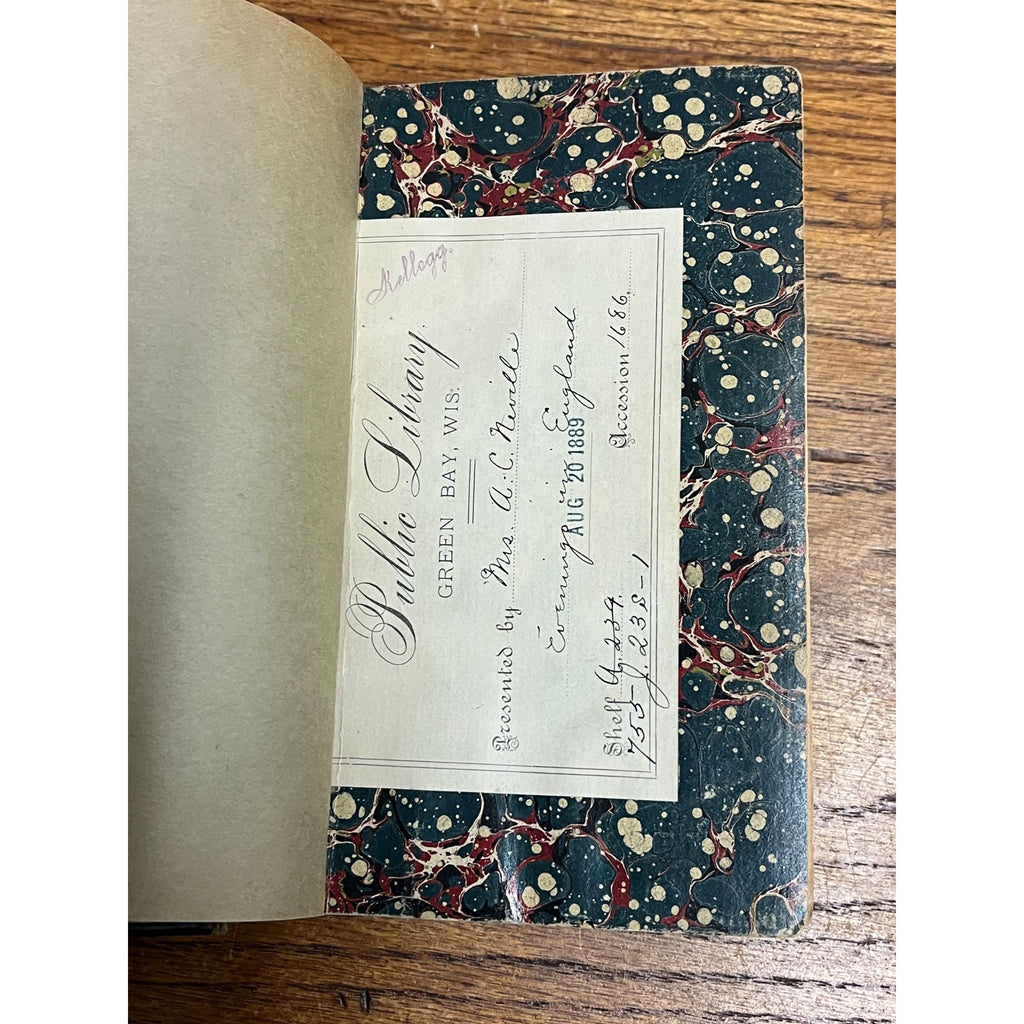 Kellogg.
Public Library.
GREEN BAY, WIS:
Presented by Mrs. A. C. Neville
Evenings in England
AUG 20 1889
Shelf A. 239. Accession 1686.
755-J. 238-1